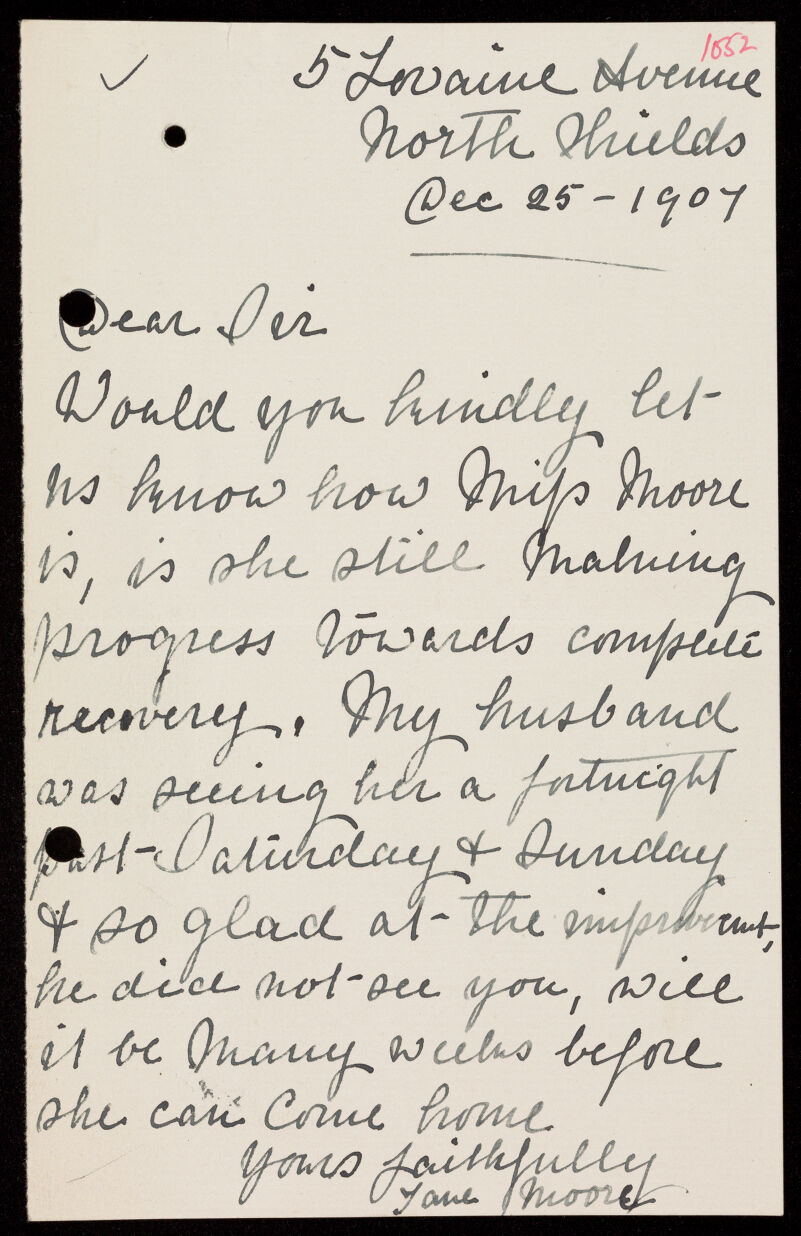 1552
5 Lovaine Avenue
North Shields
Dec 25 - 1907
Dear Sir
Would you kindly let
us know how Miss Moore
is, is she still making
progress towards complete
recovery. My husband
was seeing her a fortnight
past Saturday & Sunday
& so glad at the improvement,
he did not see you, will
it be many weeks before
she can come home
Yours faithfully
Jane Moore